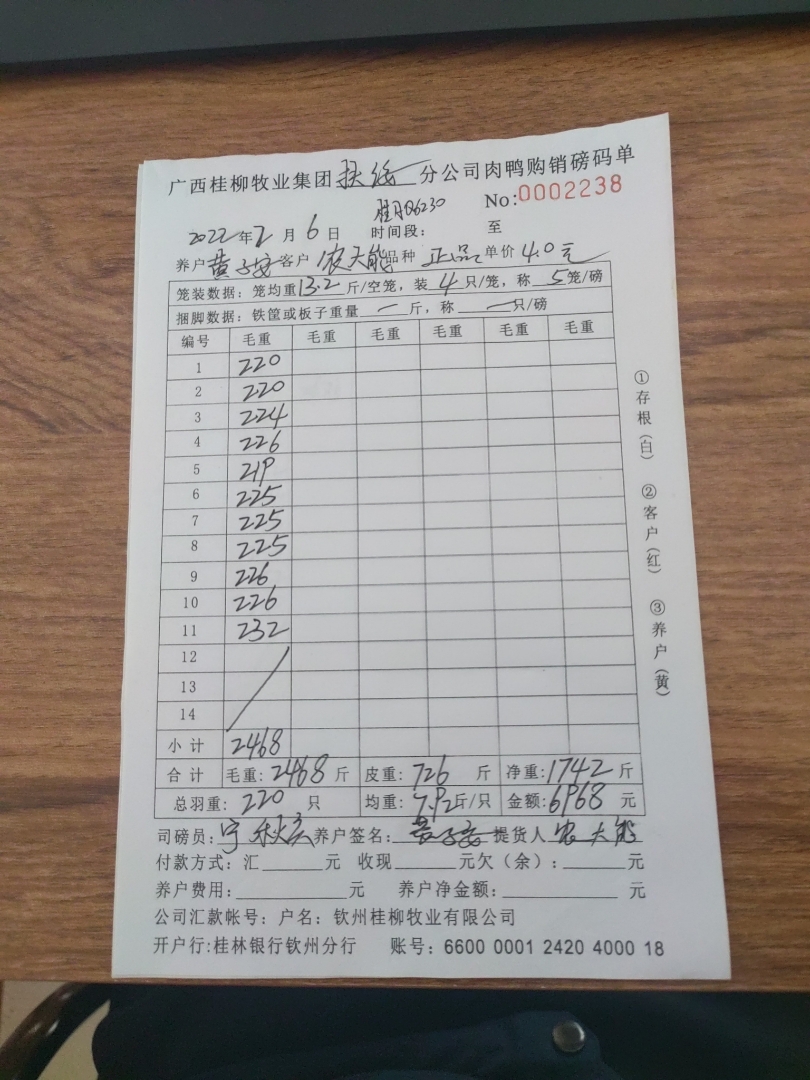 广西桂柳牧业集团扶绥分公司肉鸭购销磅码单
No:0002238
2022年2月6日 时间段： 至
养户黄子安客户农天能品种 正品 单价4.0元
笼装数据：笼均重13.2斤/空笼，装4只/笼，称5笼/磅
捆脚数据：铁筐或板子重量 一 斤，称 一 只/磅
编号 毛重 毛重 毛重 毛重 毛重 毛重
1 220
2 220
3 224
4 226
5 219
6 225
7 225
8 225
9 226
10 226
11 232
12
13
14
小计 2468
合计 毛重：2468斤 皮重：726斤 净重：1742斤
总羽重：220只 均重：7.92斤/只 金额：6968元
司磅员：宁秋 养户签名：黄子安 提货人 农天能
付款方式：汇 元 收现 元欠（余）： 元
养户费用： 元 养户净金额： 元
公司汇款帐号：户名：钦州桂柳牧业有限公司
开户行:桂林银行钦州分行 账号：6600 0001 2420 4000 18
①存根（白） ②客户（红） ③养户（黄）